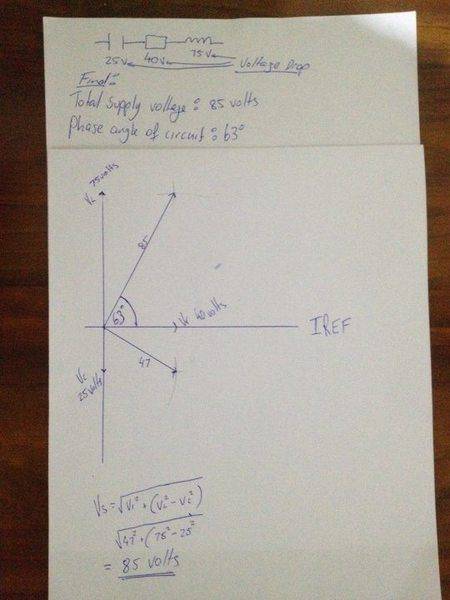 25v 40v 75v
Voltage Drop
Find:
Total supply voltage: 85 volts
phase angle of circuit: 63°
VL 75volts
85
63°
Vr 40 volts
IREF
47
Vc
25 Volts
Vs = √Vr² + (VL² - Vc²)
√47² + (75² - 25²
= 85 volts